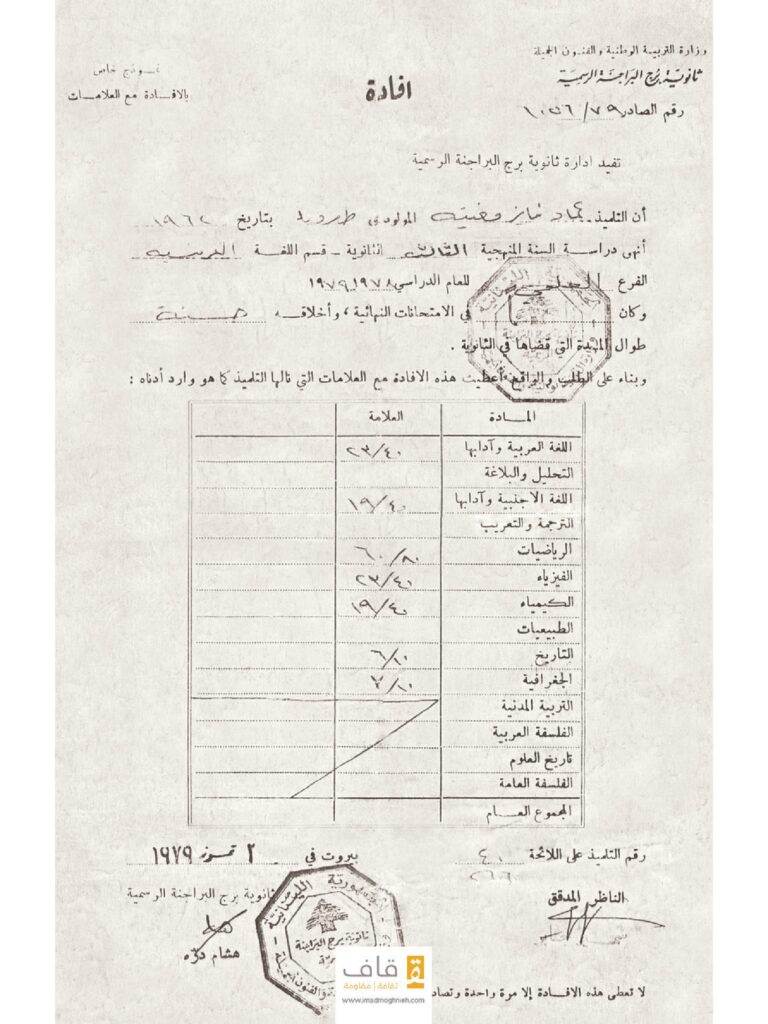 وزارة التربية الوطنية والفنون الجميلة
ثانوية برج البراجنة الرسمية
رقم الصادر ١٠٥٦/٧٩
نموذج خاص
بالافادة مع العلامات
افادة
تفيد ادارة ثانوية برج البراجنة الرسمية
أن التلميذ عماد فايز مغنيه المولود في طيردبا بتاريخ ١٩٦٢
أنهى دراسة السنة المنهجية الثالثه الثانوية - قسم اللغة
الفرع للعام الدراسي ١٩٧٨ ١٩٧٩
وكان في الامتحانات النهائية ، وأخلاقه حسنة
طوال المدة التي قضاها في الثانوية .
وبناء على الطلب والواقع أعطيت هذه الافادة مع العلامات التي نالها التلميذ كما هو وارد أدناه :
المادة العلامة
اللغة العربية وآدابها ٢٣/٤٠
التحليل والبلاغة
اللغة الاجنبية وآدابها ١٩/٤٠
الترجمة والتعريب
الرياضيات ٦٠/٨٠
الفيزياء ٢٣/٤٠
الكيمياء ١٩/٤٠
الطبيعيات
التاريخ ٦/٢٠
الجغرافية ٣/٢٠
التربية المدنية
الفلسفة العربية
تاريخ العلوم
الفلسفة العامة
المجموع العام
رقم التلميذ على اللائحة ٤٠
بيروت في ٢ تموز ١٩٧٩
الناظر المدقق
ثانوية برج البراجنة الرسمية
هشام درّه
الجمهورية اللبنانية
ثانوية برج البراجنة
والفنون الجميلة
لا تعطى هذه الافادة إلا مرة واحدة
قاف
ثقافة | مقاومة
www.imadmoghnieh.com